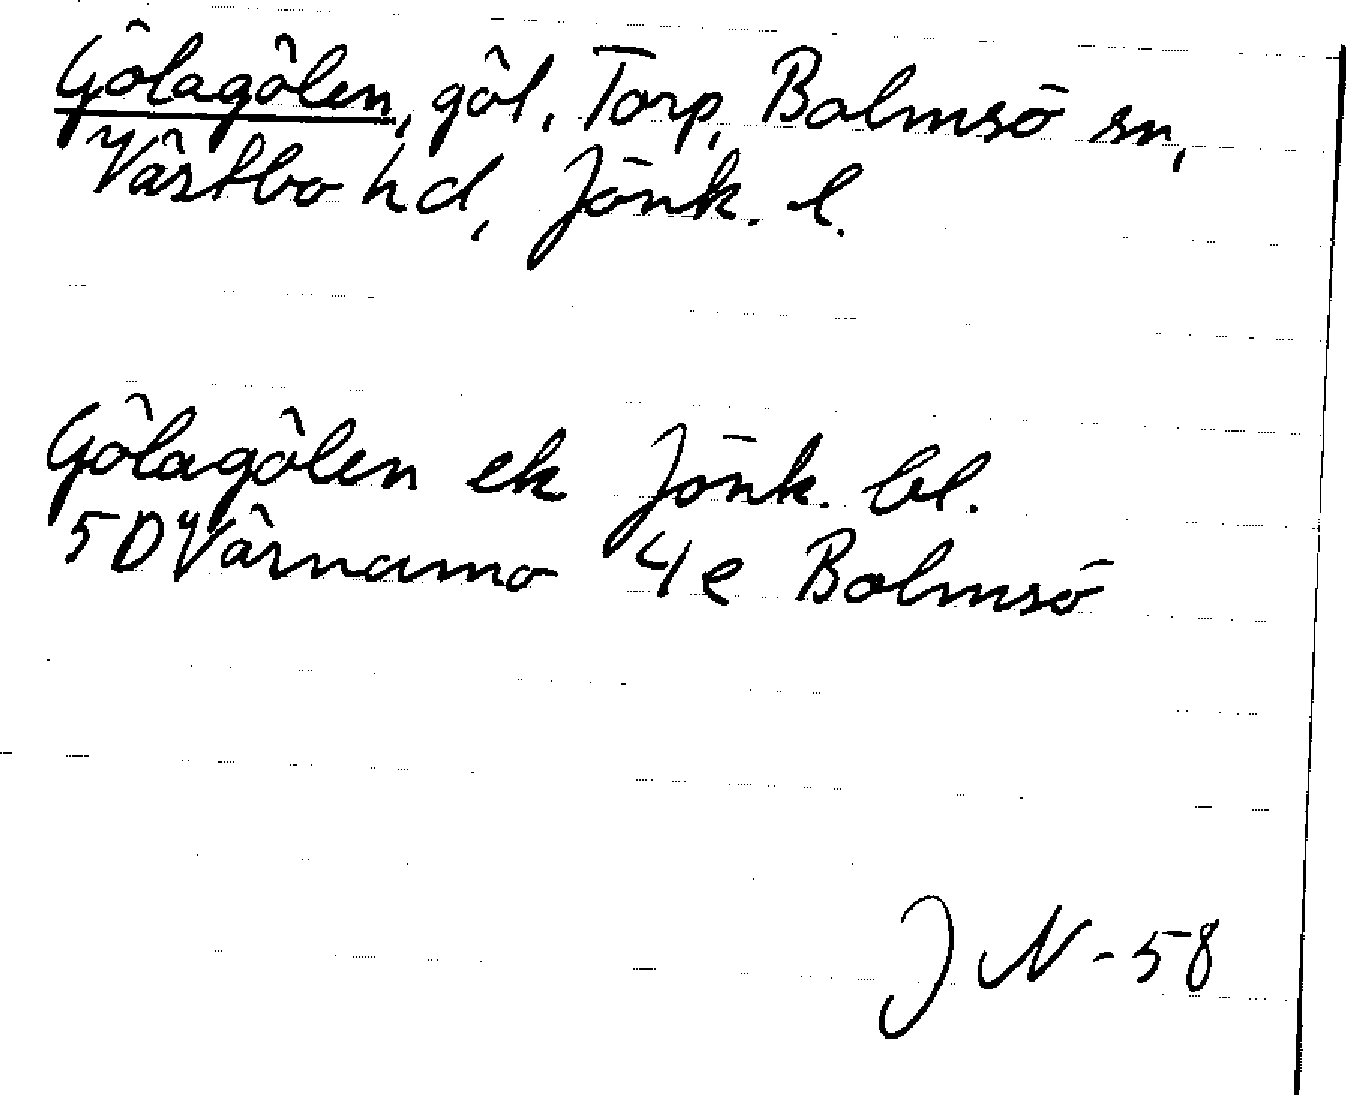 Gölagölen, göl, Torp, Bolmsö sn,
Västbo hd, Jönk. l.
Gölagölen ek Jönk. bl.
5D Värnamo 4e Bolmsö
J N - 58